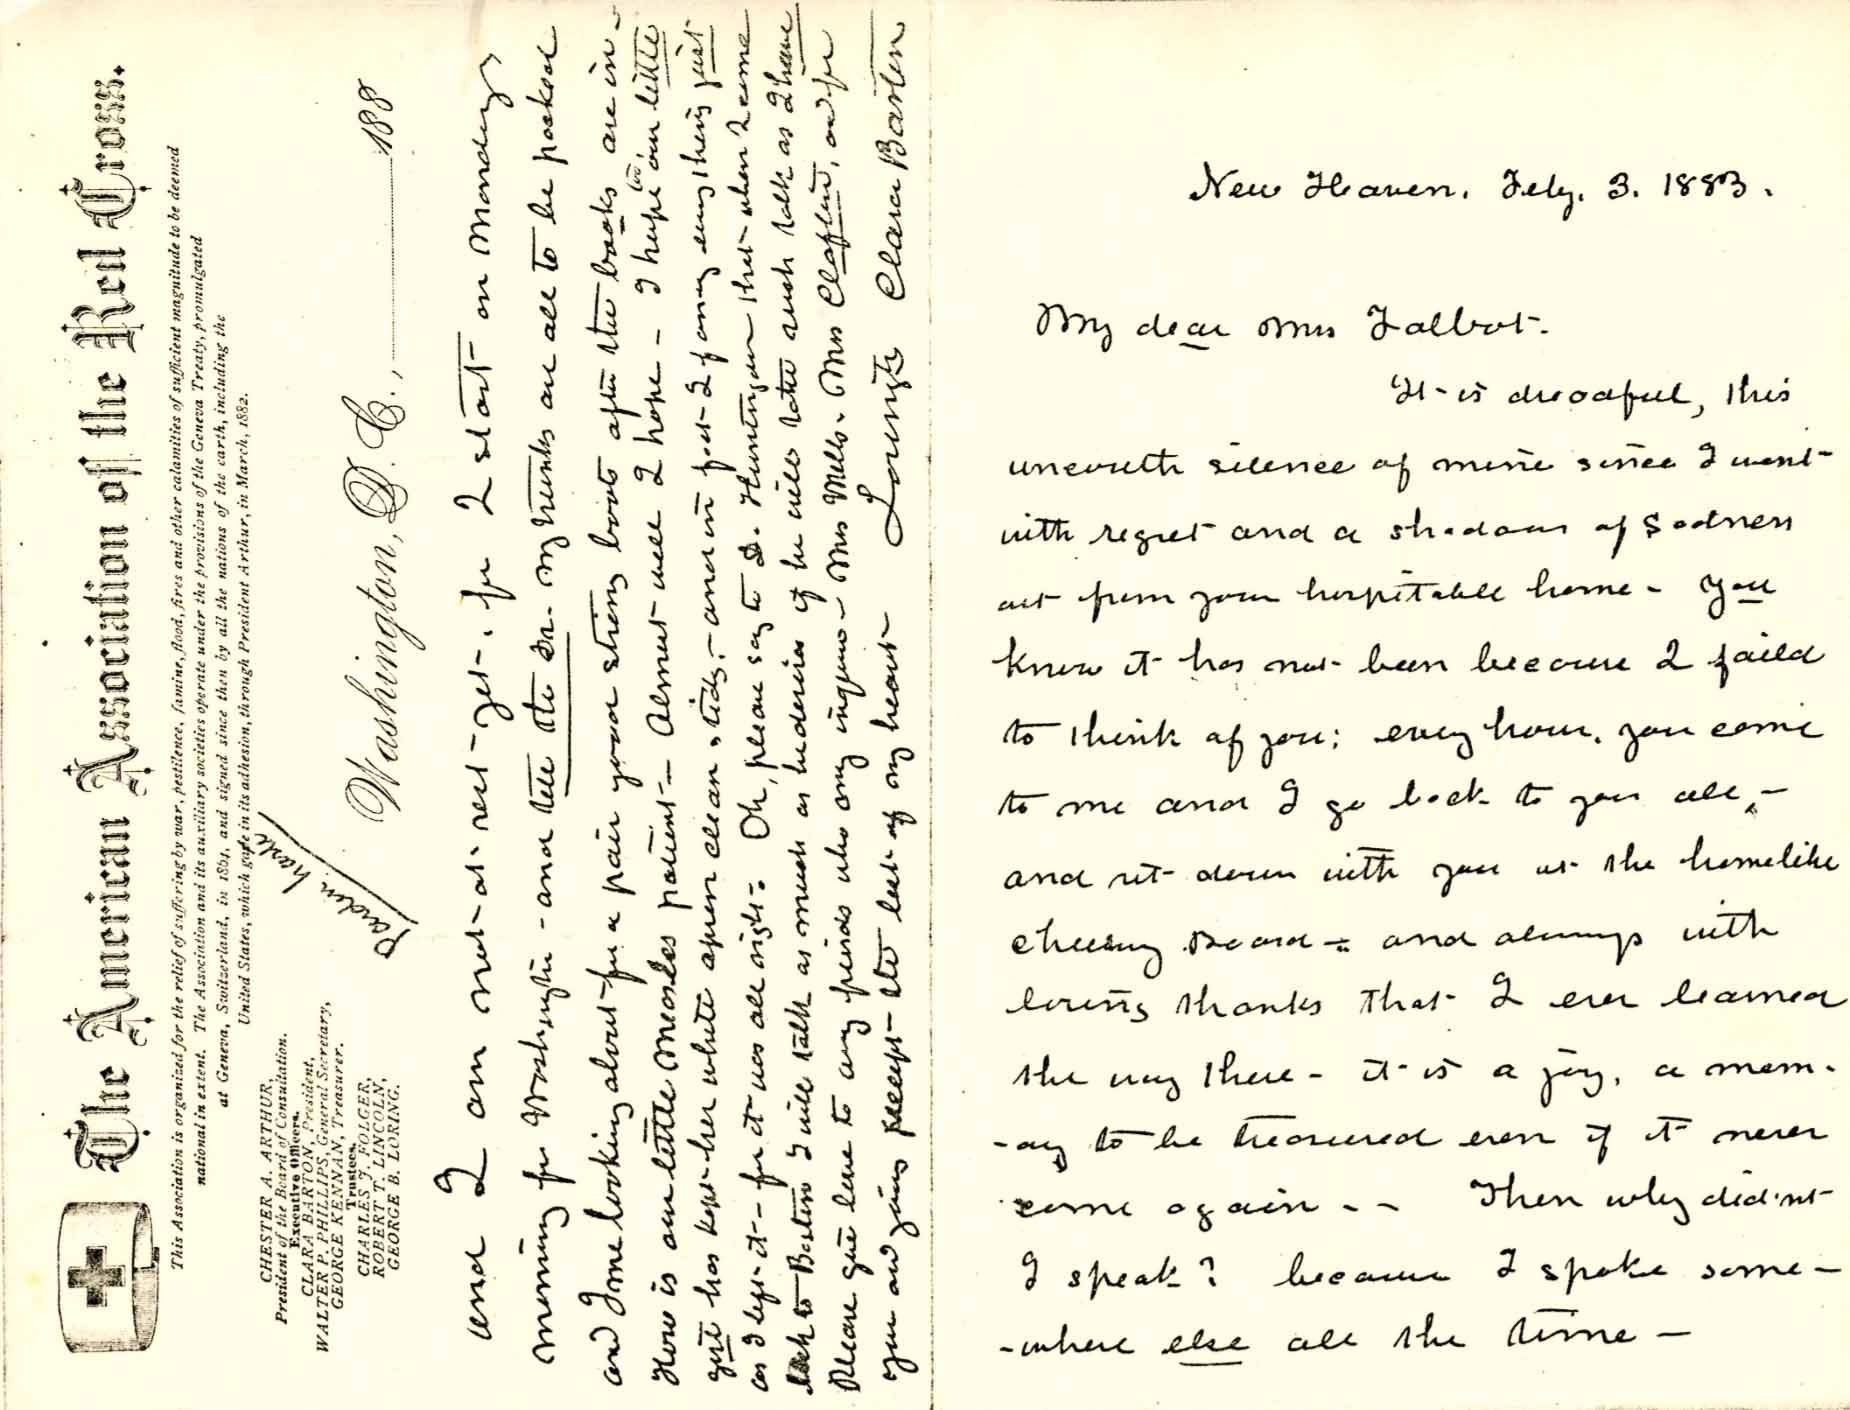 New Haven. Feby. 3. 1883.
My dear Mrs Talbot.
It is dreadful, this
uncouth silence of mine since I went
with regret and a shadow of sadness
out from your hospitable home - You
know it has not been because I faild
to think of you; every hour, you come
to me and I go back to you all, -
and sit down with you at the homelike
cheering board - and always with
loving thanks that I ever learned
the way there - it is a joy, a mem-
-ory to be treasured even if it never
come again - - Then why did'nt
I speak? because I spoke some-
-where else all the time -
The American Association of the Red Cross.
This Association is organized for the relief of suffering by war, pestilence, famine, flood, fires and other calamities of sufficient magnitude to be deemed
national in extent. The Association and its auxiliary societies operate under the provisions of the Geneva Treaty, promulgated
at Geneva, Switzerland, in 1864, and signed since then by all the nations of the earth, including the
United States, which gave in its adhesion, through President Arthur, in March, 1882.
CHESTER A. ARTHUR,
President of the Board of Consultation.
Executive Officers.
CLARA BARTON, President,
WALTER P. PHILLIPS, General Secretary,
GEORGE KENNAN, Treasurer.
Trustees.
CHARLES J. FOLGER,
ROBERT T. LINCOLN,
GEORGE B. LORING.
Pardon haste
Washington, D. C., 188
and I am not at rest yet. for I start on Monday
morning for Washington - and tell the Dr. my trunks are all to be packed
and I me looking about for a pair good strong boots after the books are in -
How is our little Measles patient - Almost well I hope - I hope too our little
girl has kept her white apron clean & tidy. - and in fact I fancy everything just
as I left it - for it was all right. Oh, please say to D. Huntington that when I come
back to Boston I will talk as much as he desires if he will take such talk as I have
Please give love to any friends who may inquire - Mrs Mills. Mrs Claflin, and for
you and yours accept the best of my heart -
Lovingly Clara Barton